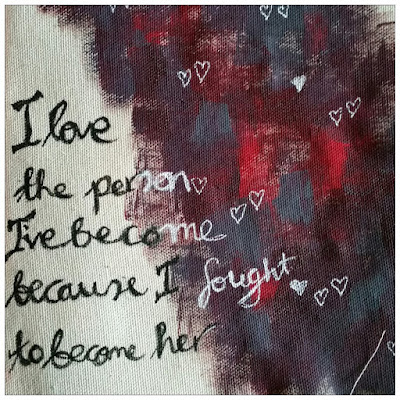 I love
the person
I've become
because I fought
to become her